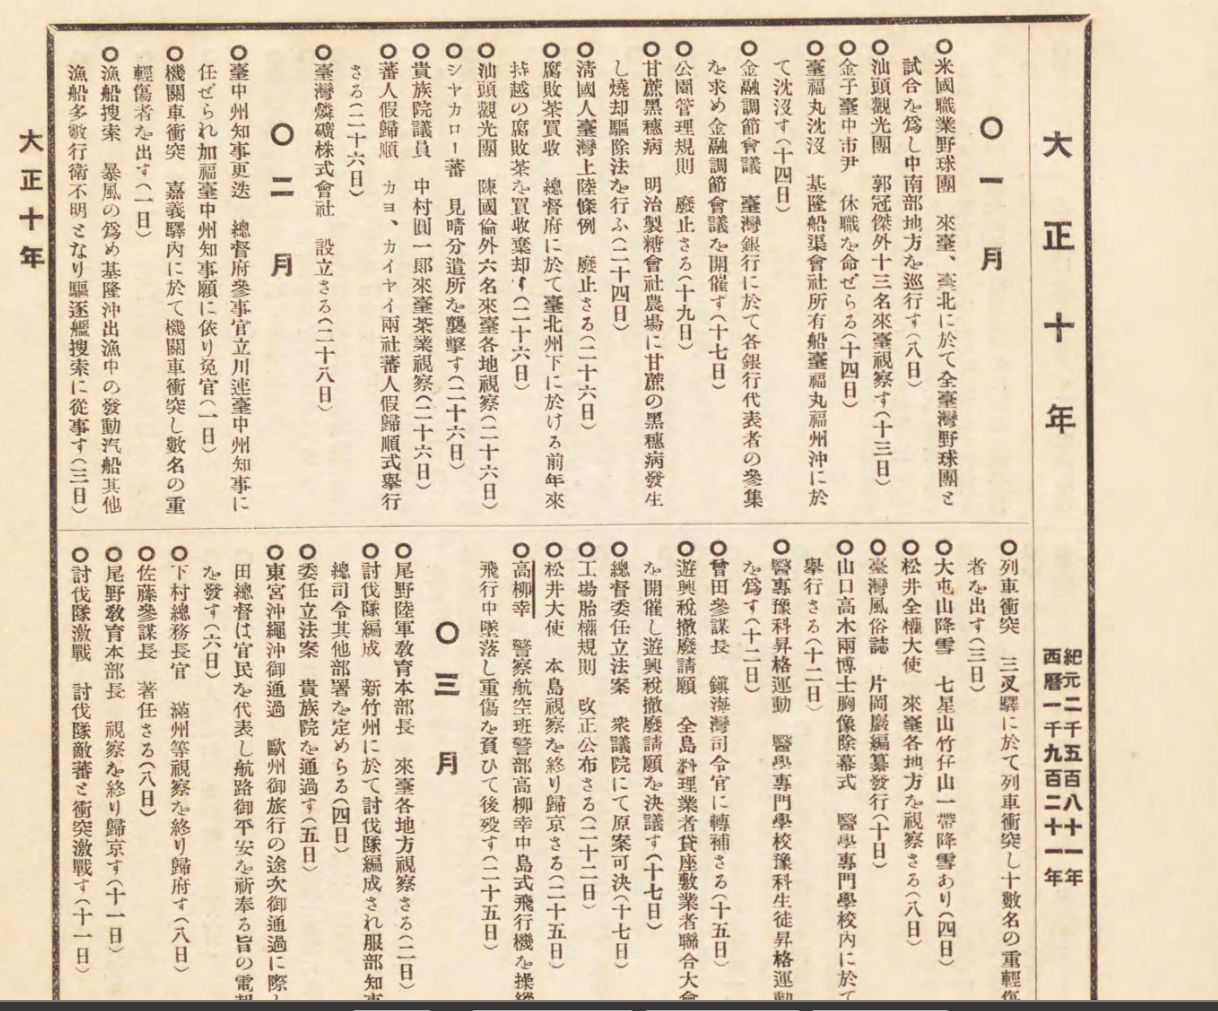 大正十年
紀元二千五百八十一年
西曆一千九百二十一年
〇一月
〇米國職業野球團　來臺、臺北に於て全臺灣野球團と
試合を爲し中南部地方を巡行す（八日）
〇汕頭觀光團　郭冠傑外十三名來臺視察す（十三日）
〇金子臺中市尹　休職を命ぜらる（十四日）
〇臺福丸沈沒　基隆船渠會社所有船臺福丸福州沖に於
て沈沒す（十四日）
〇金融調節會議　臺灣銀行に於て各銀行代表者の參集
を求め金融調節會議を開催す（十七日）
〇公園管理規則　廢止さる（十九日）
〇甘蔗黑穗病　明治製糖會社農場に甘蔗の黑穗病發生
し燒却驅除法を行ふ（二十四日）
〇淸國人臺灣上陸條例　廢止さる（二十六日）
〇腐敗茶買收　總督府に於て臺北州下に於ける前年來
持越の腐敗茶を買收棄却す（二十六日）
〇汕頭觀光團　陳國倫外六名來臺各地視察（二十六日）
〇シヤカロー蕃　見晴分遣所を襲擊す（二十六日）
〇貴族院議員　中村圓一郎來臺茶業視察（二十六日）
〇蕃人假歸順　カヨ、カイヤイ兩社蕃人假歸順式擧行
さる（二十六日）
〇臺灣燐礦株式會社　設立さる（二十八日）
〇二月
〇臺中州知事更迭　總督府參事官立川連臺中州知事に
任ぜられ加福臺中州知事願に依り免官（一日）
〇機關車衝突　嘉義驛內に於て機關車衝突し數名の重
輕傷者を出す（一日）
〇漁船搜索　暴風の爲め基隆沖出漁中の發動汽船其他
漁船多數行衛不明となり驅逐艦搜索に從事す（三日）
〇列車衝突　三叉驛に於て列車衝突し十數名の重輕傷
者を出す（三日）
〇大屯山降雪　七星山竹仔山一帶降雪あり（四日）
〇松井全權大使　來臺各地方を視察さる（八日）
〇臺灣風俗誌　片岡巖編纂發行（十日）
〇山口高木兩博士胸像除幕式　醫學專門學校內に於て
擧行さる（十二日）
〇醫專豫科昇格運動　醫學專門學校豫科生徒昇格運動
を爲す（十二日）
〇曾田參謀長　鎭海灣司令官に轉補さる（十五日）
〇遊興稅撤廢請願　全島料理業者貸座敷業者聯合大會
を開催し遊興稅撤廢請願を決議す（十七日）
〇總督委任立法案　衆議院にて原案可決（十七日）
〇工場胎權規則　改正公布さる（二十二日）
〇松井大使　本島視察を終り歸京さる（二十五日）
〇高柳幸　警察航空班警部高柳幸中島式飛行機を操縱
飛行中墜落し重傷を負ひて後歿す（二十五日）
〇三月
〇尾野陸軍敎育本部長　來臺各地方視察さる（二日）
〇討伐隊編成　新竹州に於て討伐隊編成され服部知事
總司令其他部署を定めらる（四日）
〇委任立法案　貴族院を通過す（五日）
〇東宮沖繩沖御通過　歐州御旅行の途次御通過に際し
田總督は官民を代表し航路御平安を祈奉る旨の電報
を發す（六日）
〇下村總務長官　滿州等視察を終り歸府す（八日）
〇佐藤參謀長　著任さる（八日）
〇尾野敎育本部長　視察を終り歸京す（十一日）
〇討伐隊激戰　討伐隊敵蕃と衝突激戰す（十一日）
大正十年